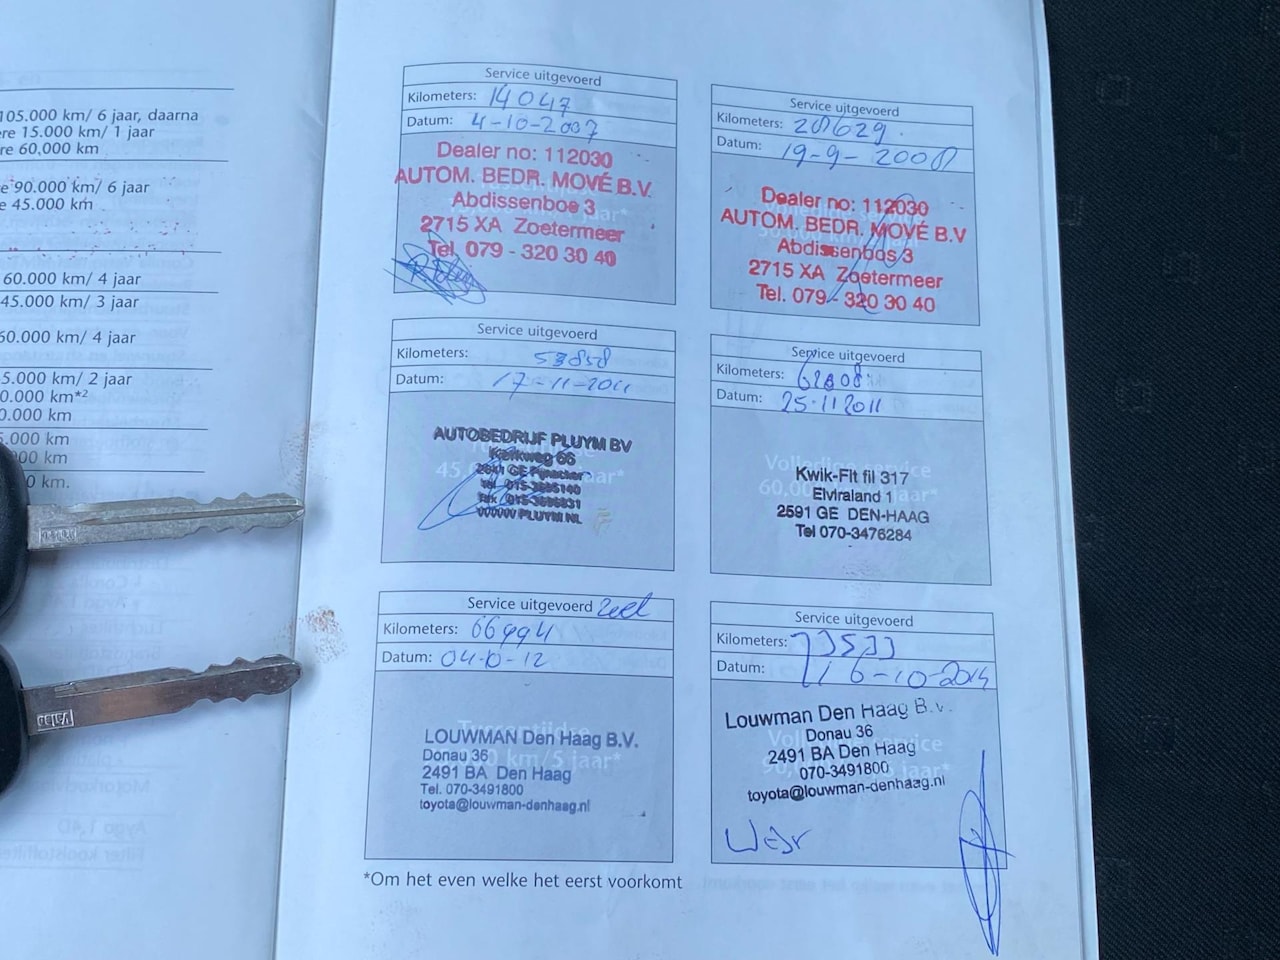 105.000 km/ 6 jaar, daarna
ere 15.000 km/ 1 jaar
ere 60,000 km
e 90.000 km/ 6 jaar
e 45.000 km
60.000 km/ 4 jaar
45.000 km/ 3 jaar
60.000 km/ 4 jaar
5.000 km/ 2 jaar
0.000 km*2
0.000 km
5.000 km
000 km
0 km.
Service uitgevoerd
Kilometers: 14047
Datum: 4-10-2007
Dealer no: 112030
AUTOM. BEDR. MOVÉ B.V.
Abdissenbos 3
2715 XA Zoetermeer
Tel. 079 - 320 30 40
Service uitgevoerd
Kilometers: 28629
Datum: 19-9-2008
Dealer no: 112030
AUTOM. BEDR. MOVÉ B.V
Abdissenbos 3
2715 XA Zoetermeer
Tel. 079 - 320 30 40
Service uitgevoerd
Kilometers:
Datum: 17-11-2011
AUTOBEDRIJF PLUYM BV
Kerkweg 66
WWW.PLUYM.NL
45.000
Service uitgevoerd
Kilometers: 62808
Datum: 25-11 2011
Volledige service
60,000
Kwik-Fit fil 317
Elviraland 1
2591 GE DEN-HAAG
Tel 070-3476284
Service uitgevoerd
Kilometers: 66994
Datum: 04-10-12
Tussentijdse
km/5 jaar*
LOUWMAN Den Haag B.V.
Donau 36
2491 BA Den Haag
Tel. 070-3491800
toyota@louwman-denhaag.nl
Service uitgevoerd
Kilometers: 73533
Datum: 16-10-2014
Louwman Den Haag B.V.
Donau 36
2491 BA Den Haag
070-3491800
toyota@louwman-denhaag.nl
*Om het even welke het eerst voorkomt